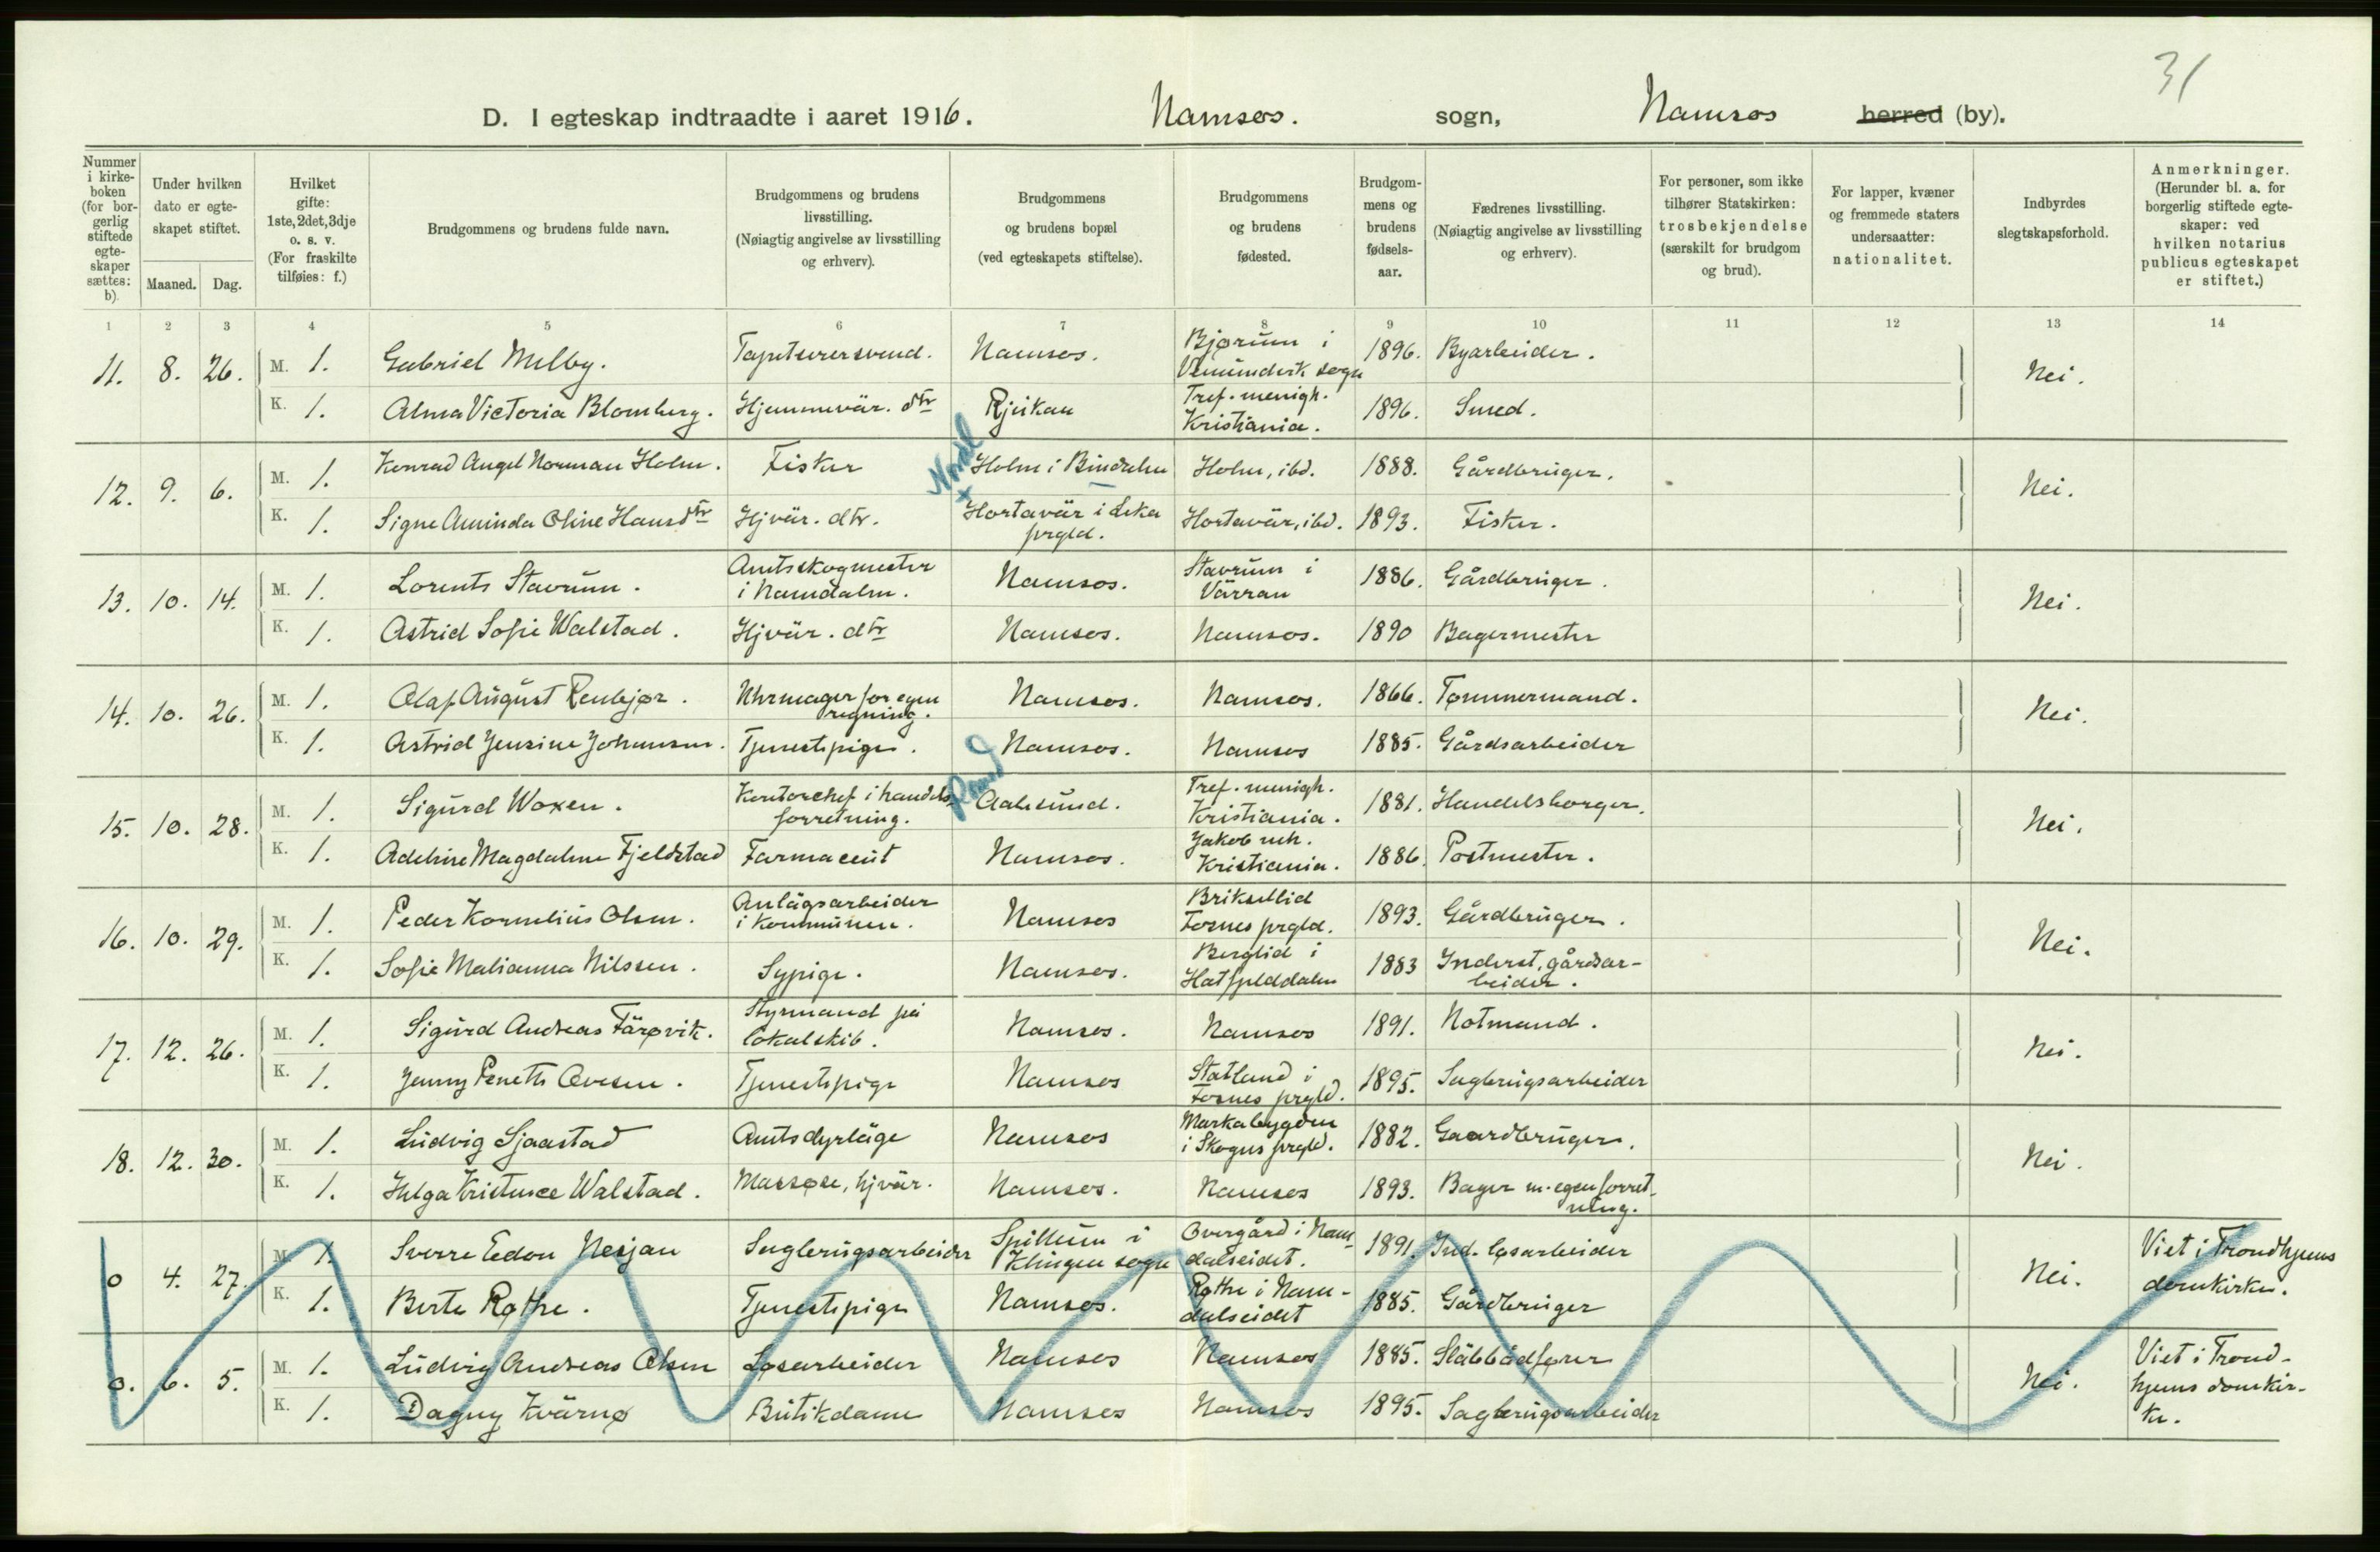 31
D. I egteskap indtraadte i aaret 1916. Namsos. sogn, Namsos herred (by).
Nummer i kirkeboken (for borgerlig stiftede egteskaper sættes: b).
Under hvilken dato er egteskapet stiftet.
Maaned. Dag.
Hvilket gifte: 1ste, 2det, 3dje o. s. v. (For fraskilte tilføies: f.)
Brudgommens og brudens fulde navn.
Brudgommens og brudens livsstilling. (Nøiagtig angivelse av livsstilling og erhverv).
Brudgommens og brudens bopæl (ved egteskapets stiftelse).
Brudgommens og brudens fødested.
Brudgommens og brudens fødselsaar.
Fædrenes livsstilling. (Nøiagtig angivelse av livsstilling og erhverv).
For personer, som ikke tilhører Statskirken: trosbekjendelse (særskilt for brudgom og brud).
For lapper, kvæner og fremmede staters undersaatter: nationalitet.
Indbyrdes slegtskapsforhold.
Anmerkninger. (Herunder bl. a. for borgerlig stiftede egteskaper: ved hvilken notarius publicus egteskapet er stiftet.)
1 2 3 4 5 6 7 8 9 10 11 12 13 14
11. 8. 26. M. 1. Gabriel Melby. Tapetserersvend. Namsos. Bjørum i sogn 1896. Byarbeider. Nei.
K. 1. Alma Victoria Blomberg. Hjemmevär. dtr Rjukan Tref. menigh. Kristiania. 1896. Smed.
12. 9. 6. M. 1. Konrad Angel Norman Holm. Fisker Nordl Holm i Bindalen Holm, ibd. 1888. Gårdbruger. Nei.
K. 1. Signe Aminda Oline Hansdtr Hjvär. dtr. × Hortavär i Leka prgld. Hortavär, ibd. 1893. Fisker.
13. 10. 14. M. 1. Lorents Stavrum. Amtsskogmester i Namdalen. Namsos. Stavrum i Värran 1886. Gårdbruger. Nei.
K. 1. Astrid Sofie Walstad. Hjvär. dtr Namsos. Namsos. 1890 Bagermester
14. 10. 26. M. 1. Olaf August Renbjør. Uhrmager for egen regning. Namsos. Namsos. 1866. Tømmermand. Nei.
K. 1. Astrid Jensine Johansen. Tjenestepige. Namsos. Namsos 1885. Gårdsarbeider
15. 10. 28. M. 1. Sigurd Woxen. Kontorchef i handelsforretning. Aalesund. Tref. menigh. Kristiania. 1881. Handelsborger. Nei.
K. 1. Adeline Magdalene Fjeldstad Farmaceut Namsos. Jakob mh. Kristiania. 1886. Postmester.
16. 10. 29. M. 1. Peder Kornelius Olsen. Anlägsarbeider i kommunen. Namsos Fosnes prgld. 1893. Gårdbruger. Nei.
K. 1. Sofie Malianna Nilssen. Sypige. Namsos. Berglid i Hatfjelddalen 1883 Inderst, gårdsarbeider.
17. 12. 26. M. 1. Sigurd Andreas Färøvik. Styrmand på lokalskib. Namsos. Namsos 1891. Notmand. Nei.
K. 1. Jenny Penette Ovesen. Tjenestepige Namsos Statland i Fosnes prgld. 1895. Sagbrugsarbeider
18. 12. 30. M. 1. Ludvig Sjaastad Amtsdyrläge Namsos Markabygden i Skogns prgld. 1882. Gaardbruger. Nei.
K. 1. Helga Kristense Walstad. Massøse, hjvär. Namsos. Namsos 1893. Bager m. egen forretning.
0 4. 27. M. 1. Sverre Edon Nesjan Sagbrugsarbeider Spillum i Klingen sogn Overgård i Namdalseidet. 1891. Ind. løsarbeider Nei. Viet i Trondhjems domkirke.
K. 1. Berte Røthe. Tjenestepige Namsos. Røthe i Namdalseidet 1885. Gårdbruger
0. 6. 5. M. 1. Ludvig Andreas Olsen Løsarbeider Namsos Namsos 1885. Släbbådfører Nei. Viet i Trondhjems domkirke.
K. 1. Dagny Kvärnø Butikdame Namsos Namsos 1895. Sagbrugsarbeider